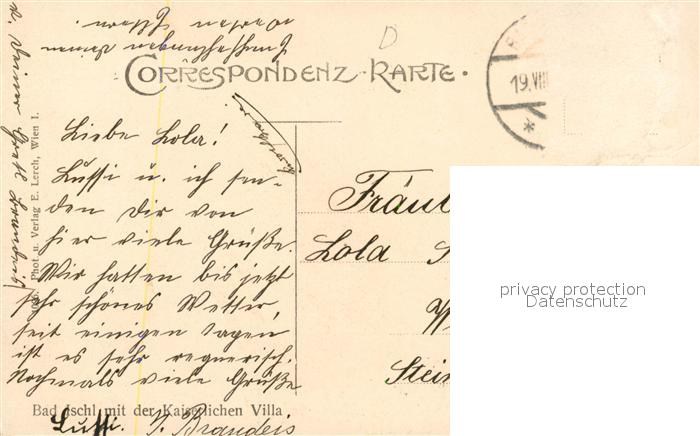 CORRESPONDENZ-KARTE.
D
19.VIII
Liebe Lola!
Lussi u. ich sen-
den Dir von
hier viele Grüße.
Wir hatten bis jetzt
sehr schönes Wetter,
seit einigen Tagen
ist es sehr regnerisch.
Nochmals viele Grüße
Lussi. V. Branders
Bad Ischl mit der Kaiserlichen Villa
Phot. u. Verlag E. Lerch, Wien I.
Fräul
Lola
W
Stein
privacy protection
Datenschutz